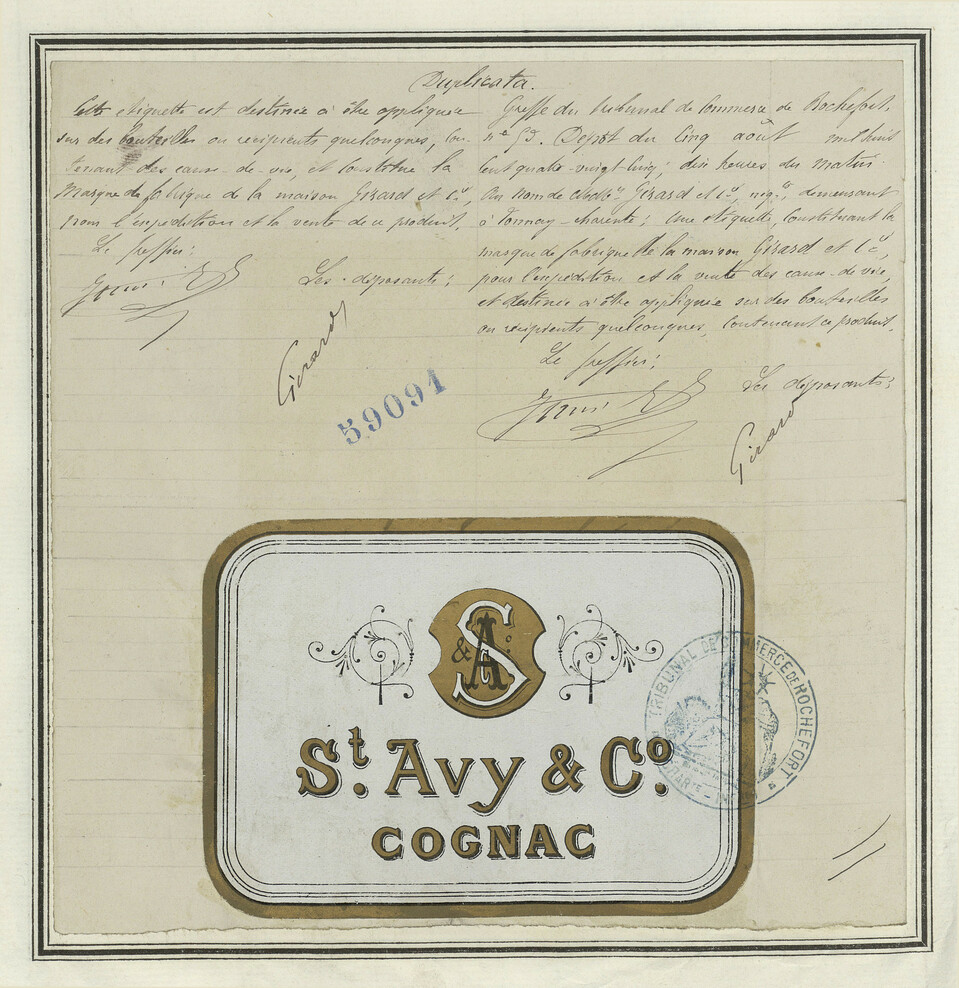 Duplicata.
Cette etiquette est destinée à être appliquée
sur des bouteilles ou récipients quelconques, con-
tenant des eaux-de-vie, et constitue la
marque de fabrique de la maison Girard et Cie,
pour l'expédition et la vente de ce produit.
Le greffier:
Les déposants:
Girard
Greffe du tribunal de Commerce de Rochefort.
Dépôt du Cinq août mil huit
cent quatre-vingt-cinq, dix heures du matin
Au nom de Girard et Cie, demeurant
à Tonnay-charente; Une etiquette, Constituant la
marque de fabrique de la maison Girard et Cie,
pour l'expédition et la vente des eaux-de-vie,
et destinée à être appliquée sur des bouteilles
ou récipients quelconques, Contenant ce produit.
Le greffier:
Les déposants:
Girard
59091
S A & Co
St. Avy & Co.
COGNAC
TRIBUNAL DE COMMERCE DE ROCHEFORT